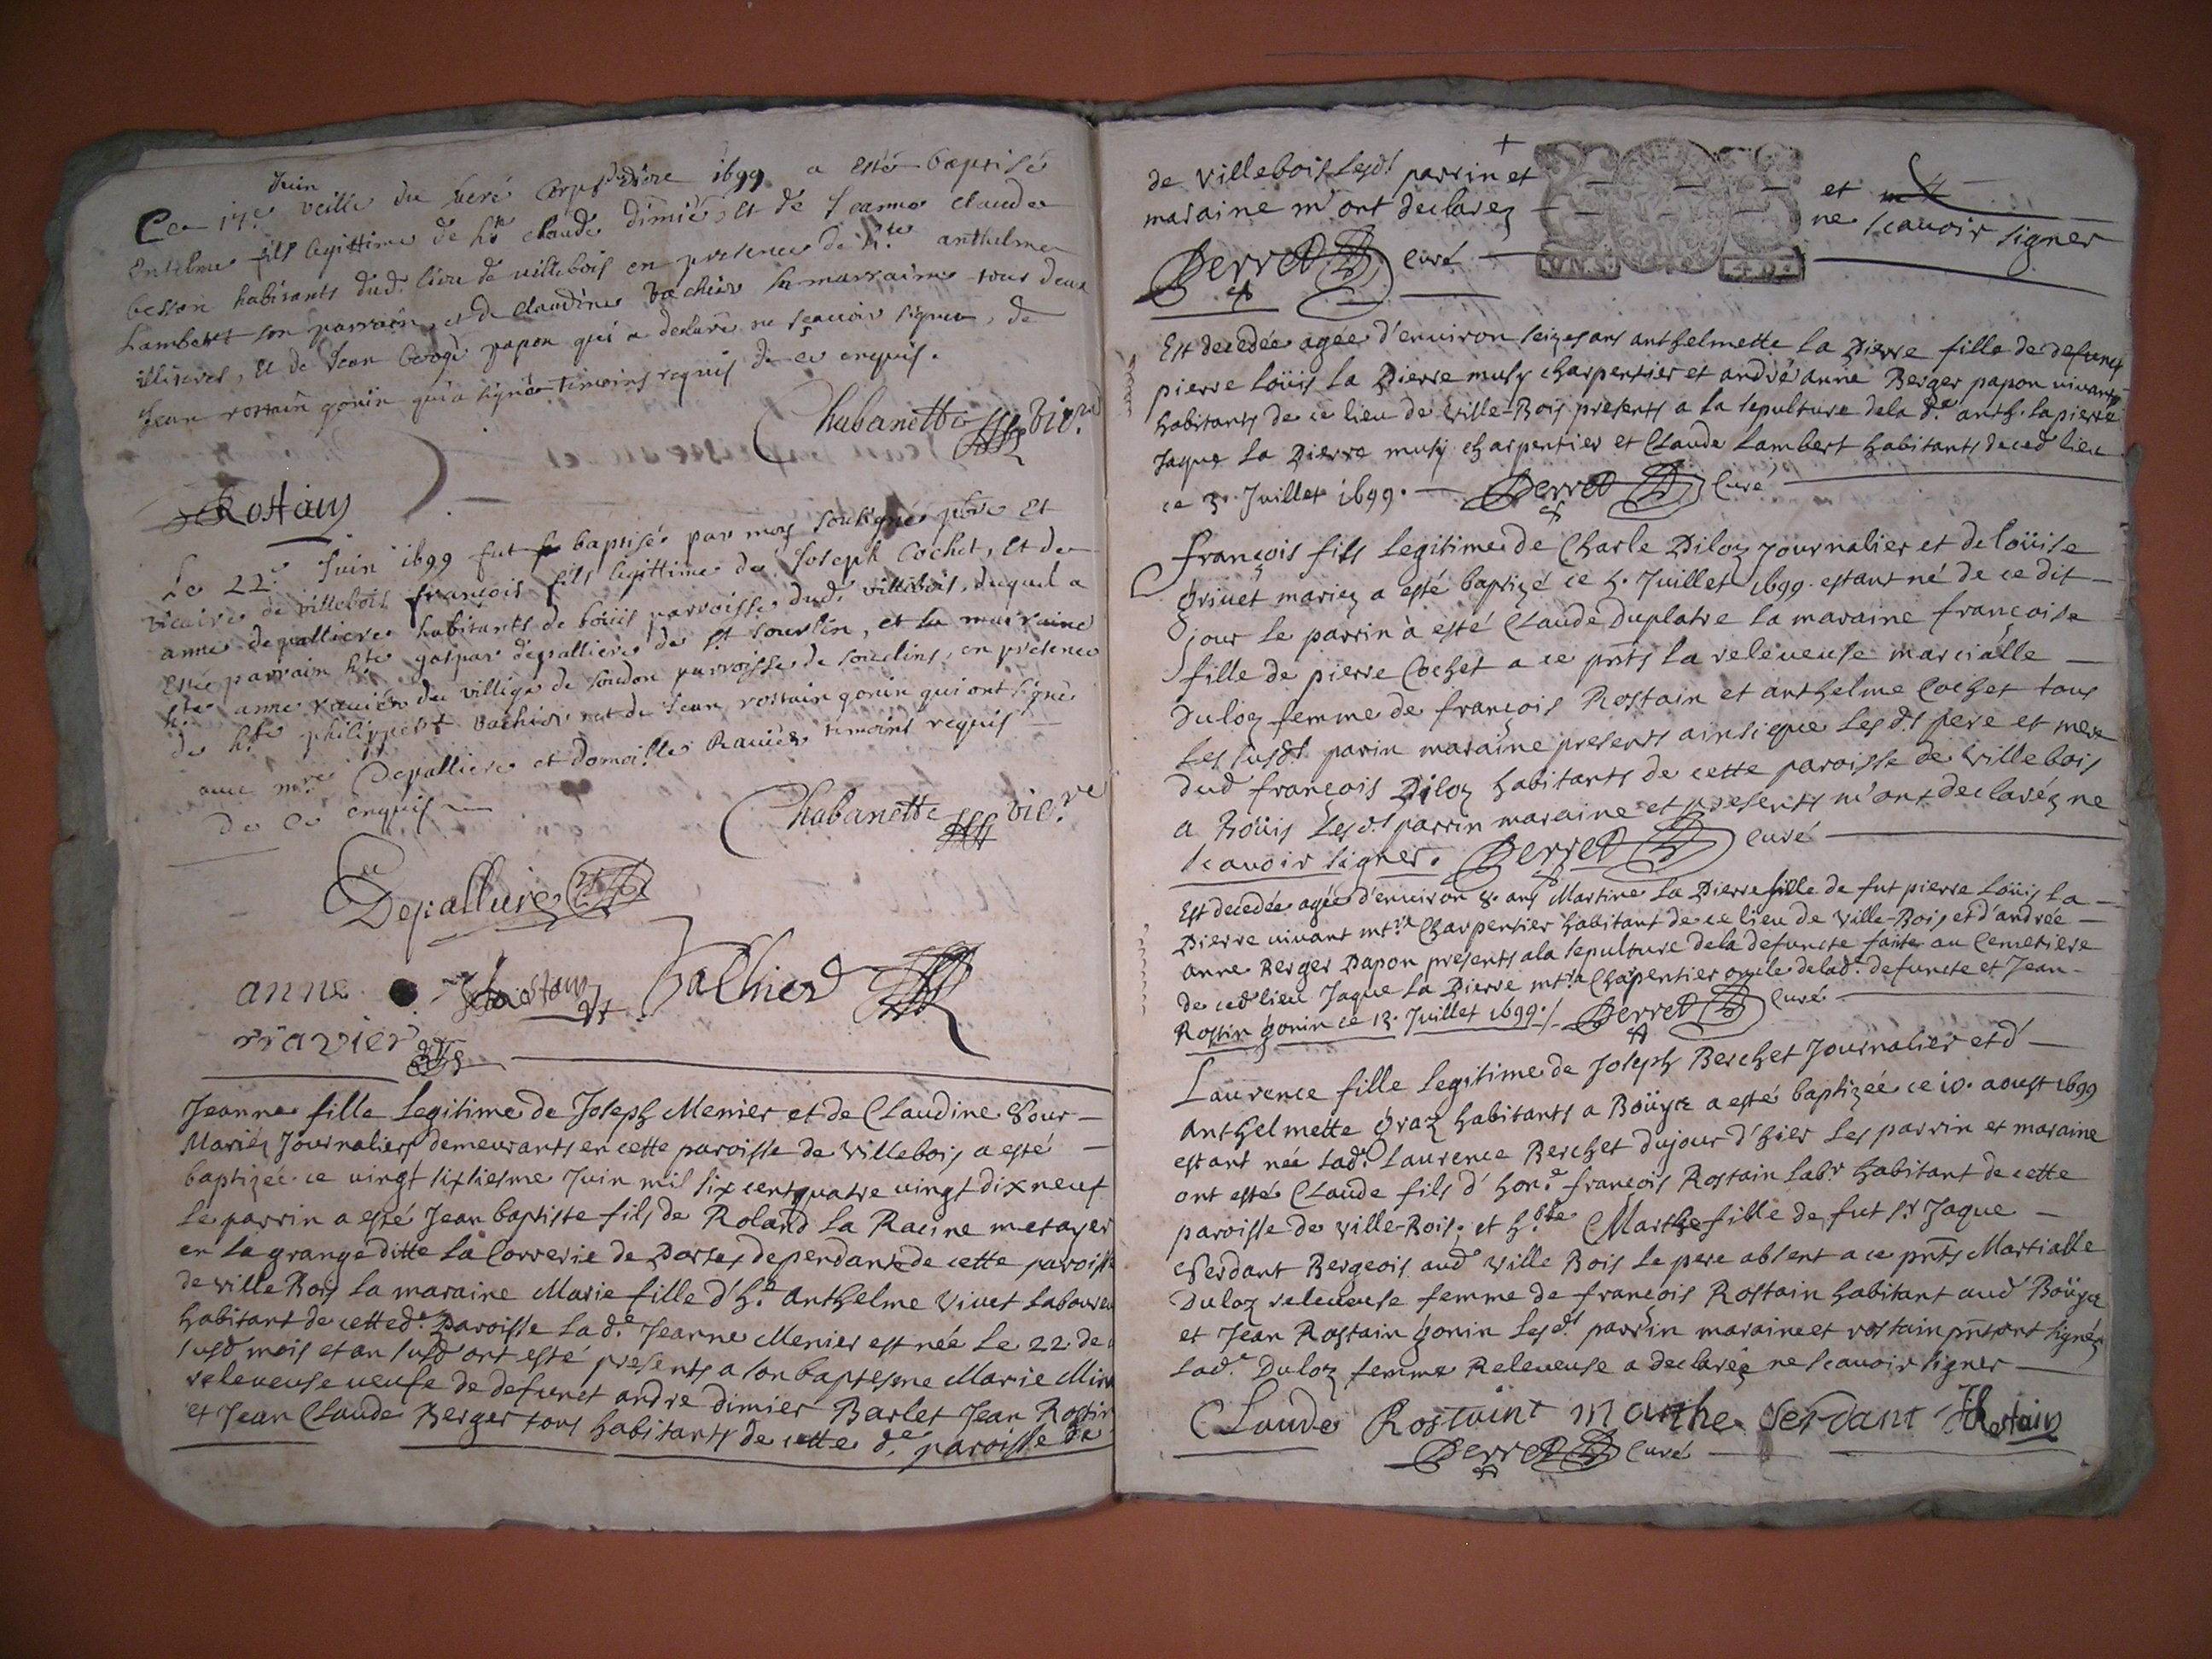 Juin
Ce 17e veille du sacré Corps de dieu 1699 a esté baptisé
Entelme fils legittime de hte claude dimier, et de Jeanne claude
besson habitants dud. lieu de villebois en presence de h.te anthelme
Lambert son parrain, et de claudine vachier sa marraine tous deux
illiteres, et de Jean berger papon qui a declaré ne sçavoir signer, de
Jean rostain gonin qui a signé temoins requis de ce enquis.
Chabanette vic.re
JRostain
Le 22e Juin 1699 fut baptisé par moy soubsigné pbre et
vicaire de villebois françois fils legittime de Joseph Cochet, et de
anne depalliere habitants de boüis parroisse dud. villebois, duquel a
esté parrain h.te gaspar depalliere de St sourlin, et la marraine
h.te anne ravier du village de soudon parroisse de souclins, en presence
de h.te philippert vachier et de Jean rostain gonin qui ont signé
avec m.re Depalliere et domoiselle Ravier temoins requis
de ce enquis
Chabanette vic.re
Depalliere
anne JRostain Vachier
rravier
Jeanne fille Legitime de Joseph Menier et de Claudine
Mariéz Journaliers demeurants en cette paroisse de villebois a esté
baptizée ce vingt sixiesme Juin mil six cent quatre vingt dix neuf
Le parrin a esté Jean baptiste fils de Roland La Racine metayer
en la grange ditte La Correrie de Portes dependante de cette paroisse
de ville Bois la maraine Marie fille d'h.e Anthelme Vivet Laboureu
habitant de cette d.e Paroisse La d.e Jeanne Menier est née Le 22 de
susd mois et an susd ont esté presents a son baptesme Marie
releveuse veufe de defunct andre dimier Barlet Jean Rostin
et Jean Claude Berger tous habitants de cette d.e paroisse de
de villebois Lesd.s parrin et et
maraine m'ont declarez ne scavoir signer
Perret curé
Est decedée agée d'environ seize ans anthelmette La Pierre fille de defunct
pierre Loüis La Pierre charpentier et andré anne Berger papon vivants
habitants de ce lieu de Ville-Bois presents a la sepulture de la d.e anth. Lapierre
Jaque La Pierre charpentier et Claude Lambert habitants de ced lieu
ce 3. Juillet 1699. Perret Curé
françois fils Legitime de Charle Piloz Journalier et de Loüise
Grivet mariez a esté baptizé ce 5. Juillet 1699. estant né de ce dit
jour Le parrin a esté Claude Duplatre La maraine françoise
fille de pierre Cochet a ce pnts La releveuse marcialle
Duloz femme de françois Rostain et anthelme Cochet tous
Les susd.s parin maraine presents ainsi que Lesd.s pere et mere
dud françois Piloz habitants de cette paroisse de villebois
a Boüis Lesd.s parrin maraine et presents m'ont declaréz ne
scavoir signer. Perret curé
Est decedée agée d'environ 8. ans Martine La Pierre fille de fut pierre Loüis La
Pierre vivant mtre Charpentier habitant de ce lieu de Ville-Bois et d'andrée
anne Berger Papon presents a la sepulture de la defuncte faite au Cemetiere
de ced lieu Jaque La Pierre mtre Chapentier oncle de lad.e defuncte et Jean
Rostin gonin ce 13. Juillet 1699./ Perret Curé
Laurence fille Legitime de Joseph Berchet Journalier et d'
Anthelmette Graz habitants a Boüys a esté baptizée ce 10. aoust 1699
estant née Lad.e Laurence Berchet du jour d'hier Les parrin et maraine
ont estés Claude fils d'hon.e françois Rostain Lab.r habitant de cette
paroisse de ville-Bois; et h.ble Marthe fille de fut Sr Jaque
Serdant Bergeois aud Ville Bois Le pere absent a ce pnts Martialle
Duloz releveuse femme de françois Rostain habitant aud Boüys
et Jean Rostain gonin Lesd.s parrin maraine et rostain pnt ont signéz
Lad.e Duloz femme Releveuse a declarée ne scavoir signer
Claude Rostaint Marthe Serdant JRostain
Perret Curé